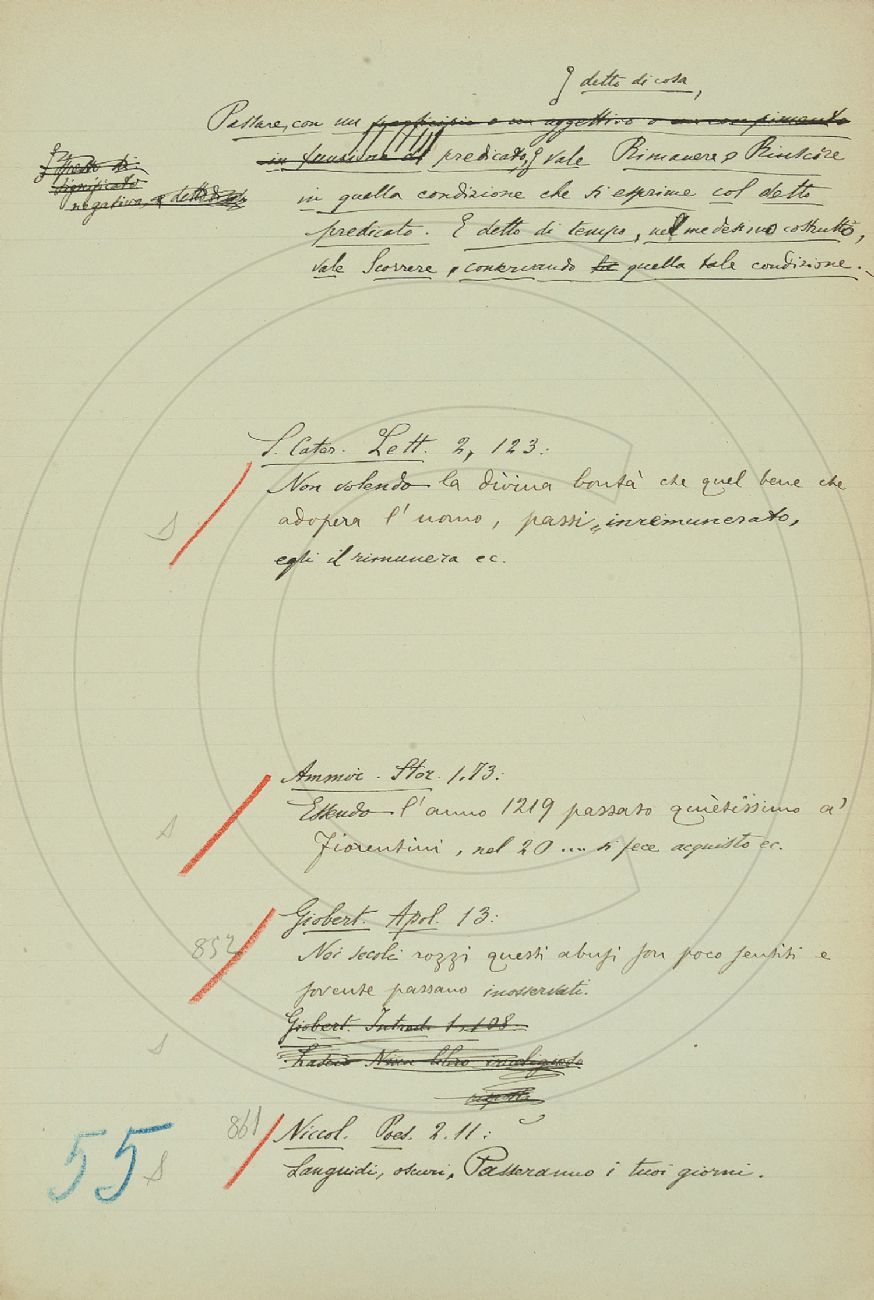 detto di cosa,
Passare, con un participio o un aggettivo o un compimento
in funzione di predicato, vale Rimanere, Riuscire
in quella condizione che si esprime col detto
predicato. E detto di tempo, nel medesimo costrutto,
vale Scorrere, conservando quella tale condizione.
detto di
significato
negativo, e detto di
S. Cater. Lett. 2, 123:
Non volendo la divina bontà che quel bene che
adopera l'uomo, passi inremunerato,
egli il rimunera ec.
S
Ammir. Stor. 1.73:
Essendo l'anno 1219 passato quietissimo a'
Fiorentini, nel 20 .... si fece acquisto ec.
S
Giobert. Apol. 13:
852
Nei secoli rozzi questi abusi son poco sentiti e
sovente passano inosservati.
Giobert. Introd. 1, 108:
Niun libro
S
861
Niccol. Poes. 2. 11:
Languidi, oscuri, Passeranno i tuoi giorni.
55 S